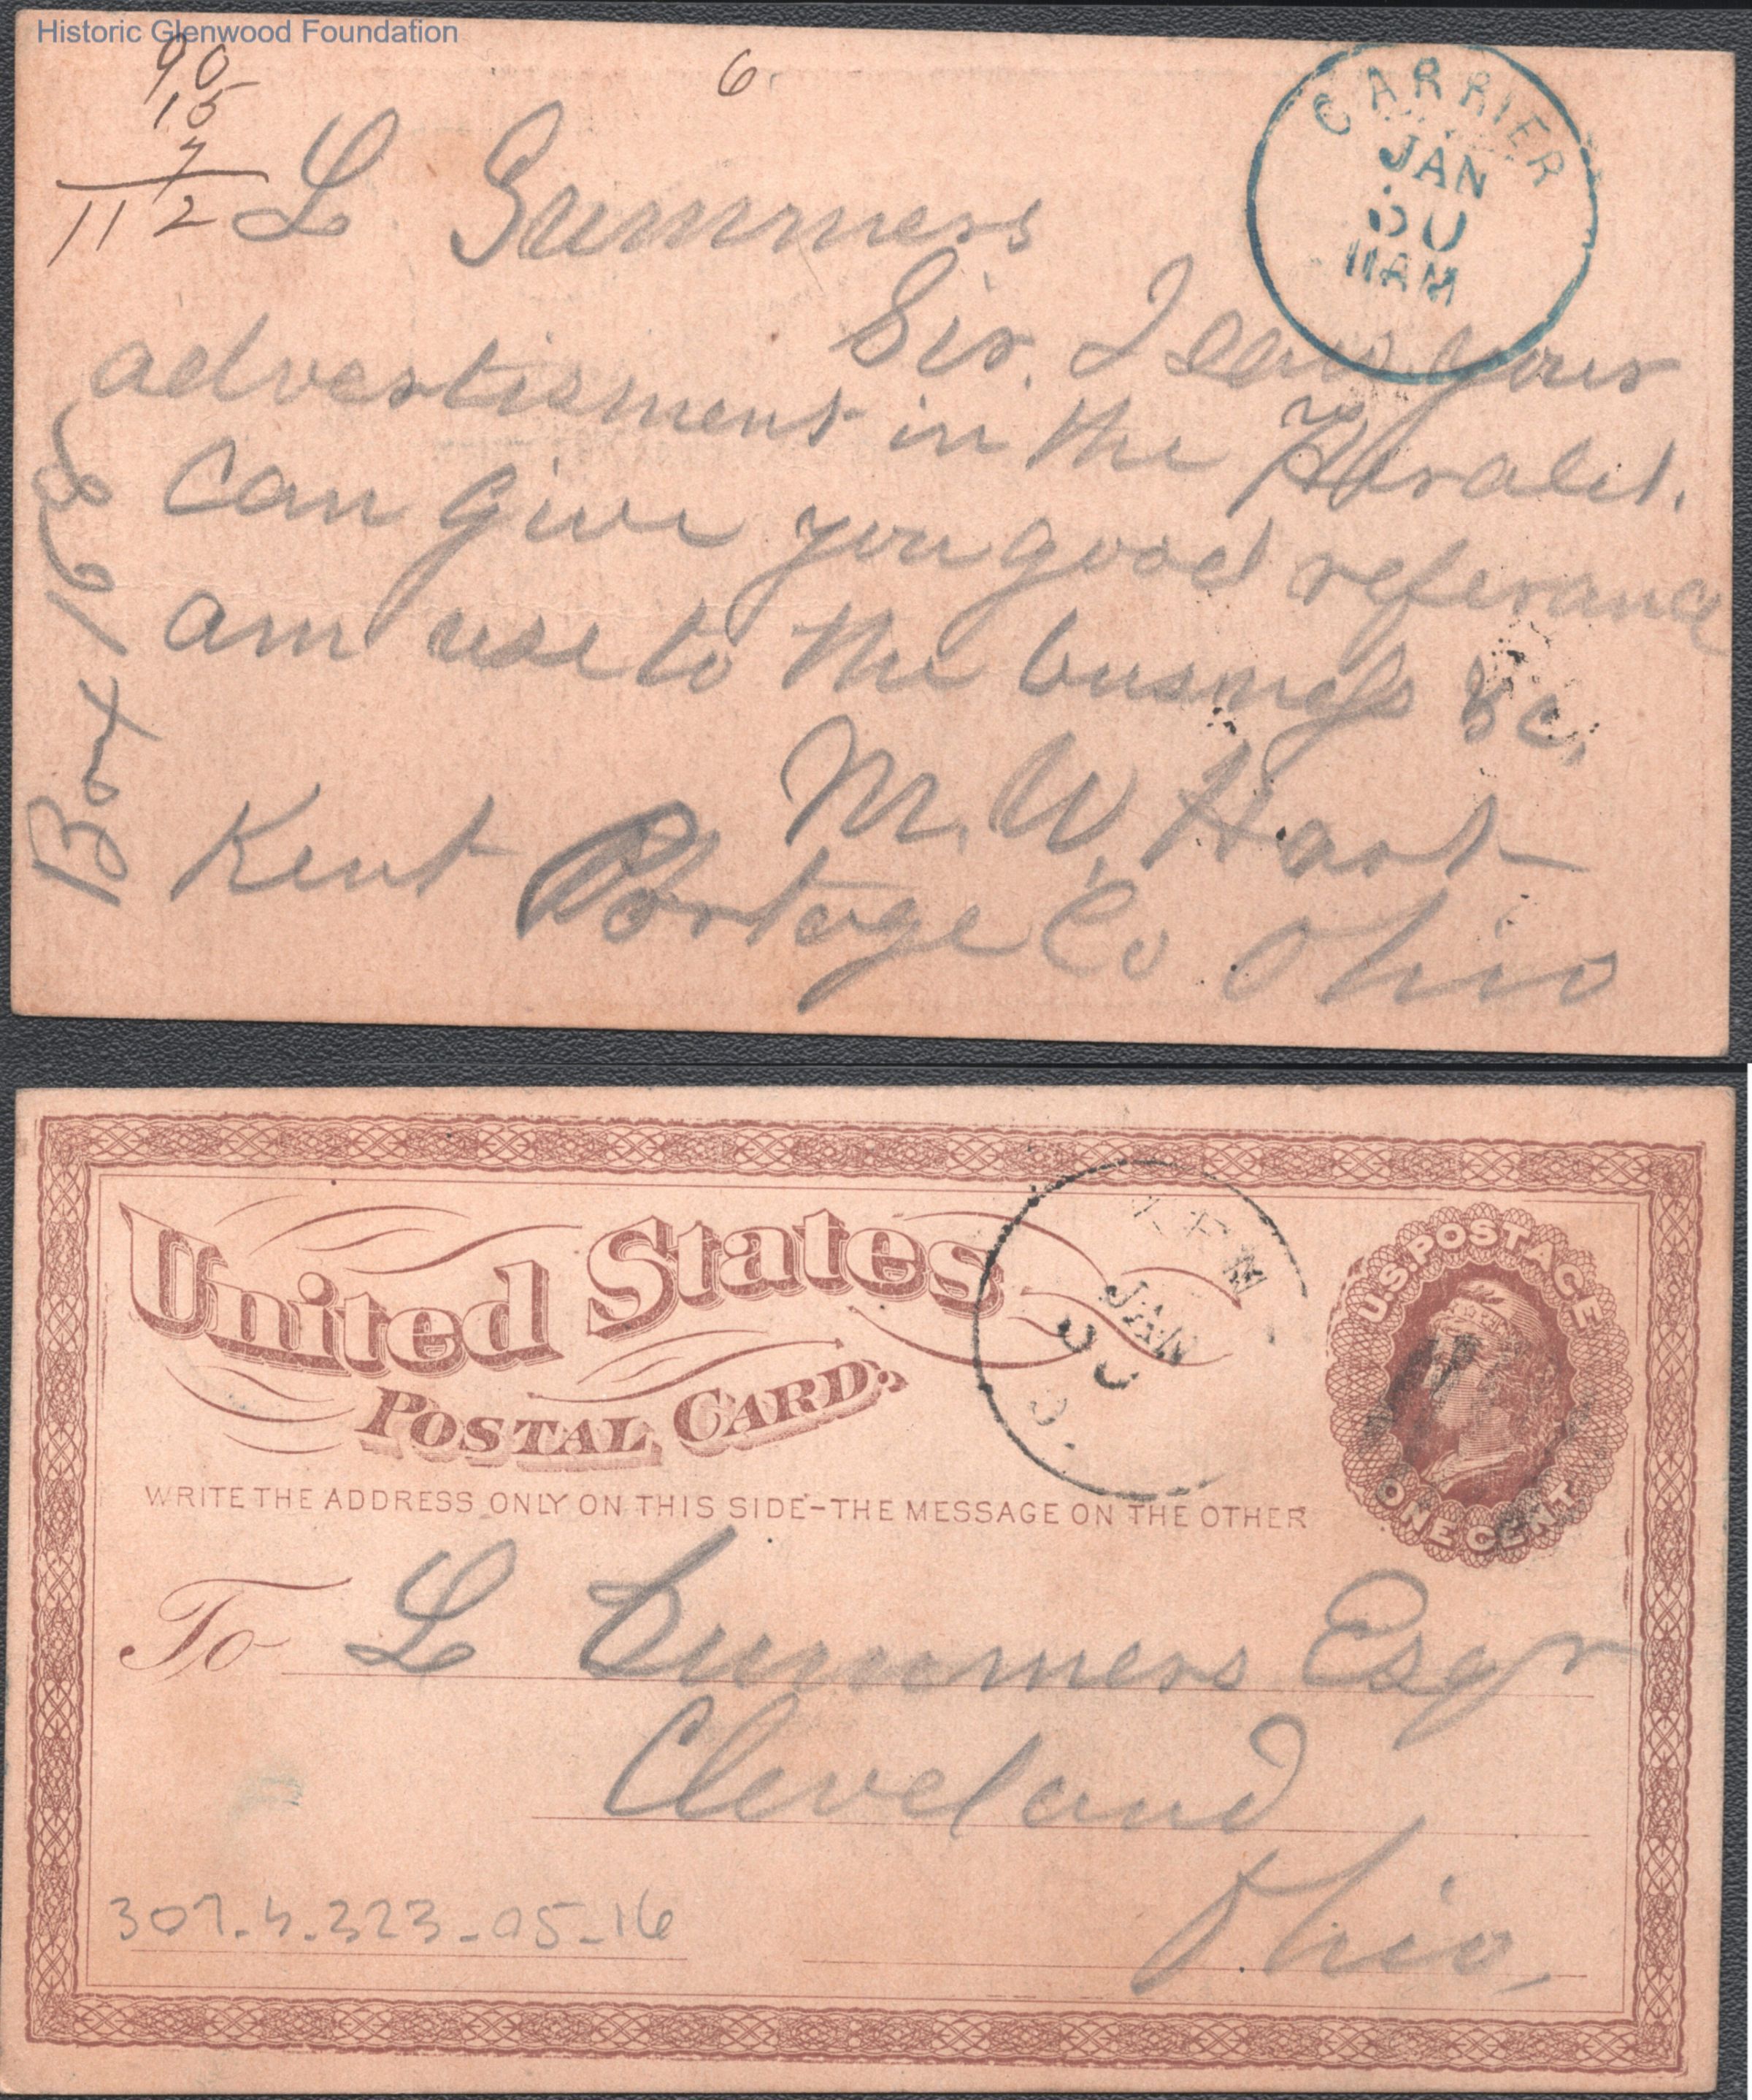 Historic Glenwood Foundation
90
15
7
112
6
CARRIER
JAN
30
11AM
L Summers
Sir. I saw your
advertisment in the Herald.
can give you good referance
am use to the busness &c,
M. W. Hart
Kent Portage Co Ohio
Box 168
United States
POSTAL CARD.
WRITE THE ADDRESS ONLY ON THIS SIDE-THE MESSAGE ON THE OTHER
U.S. POSTAGE
ONE CENT
JAN
30
O.
To L Summers Esqr
Cleveland
Ohio,
307.4.323-05-16